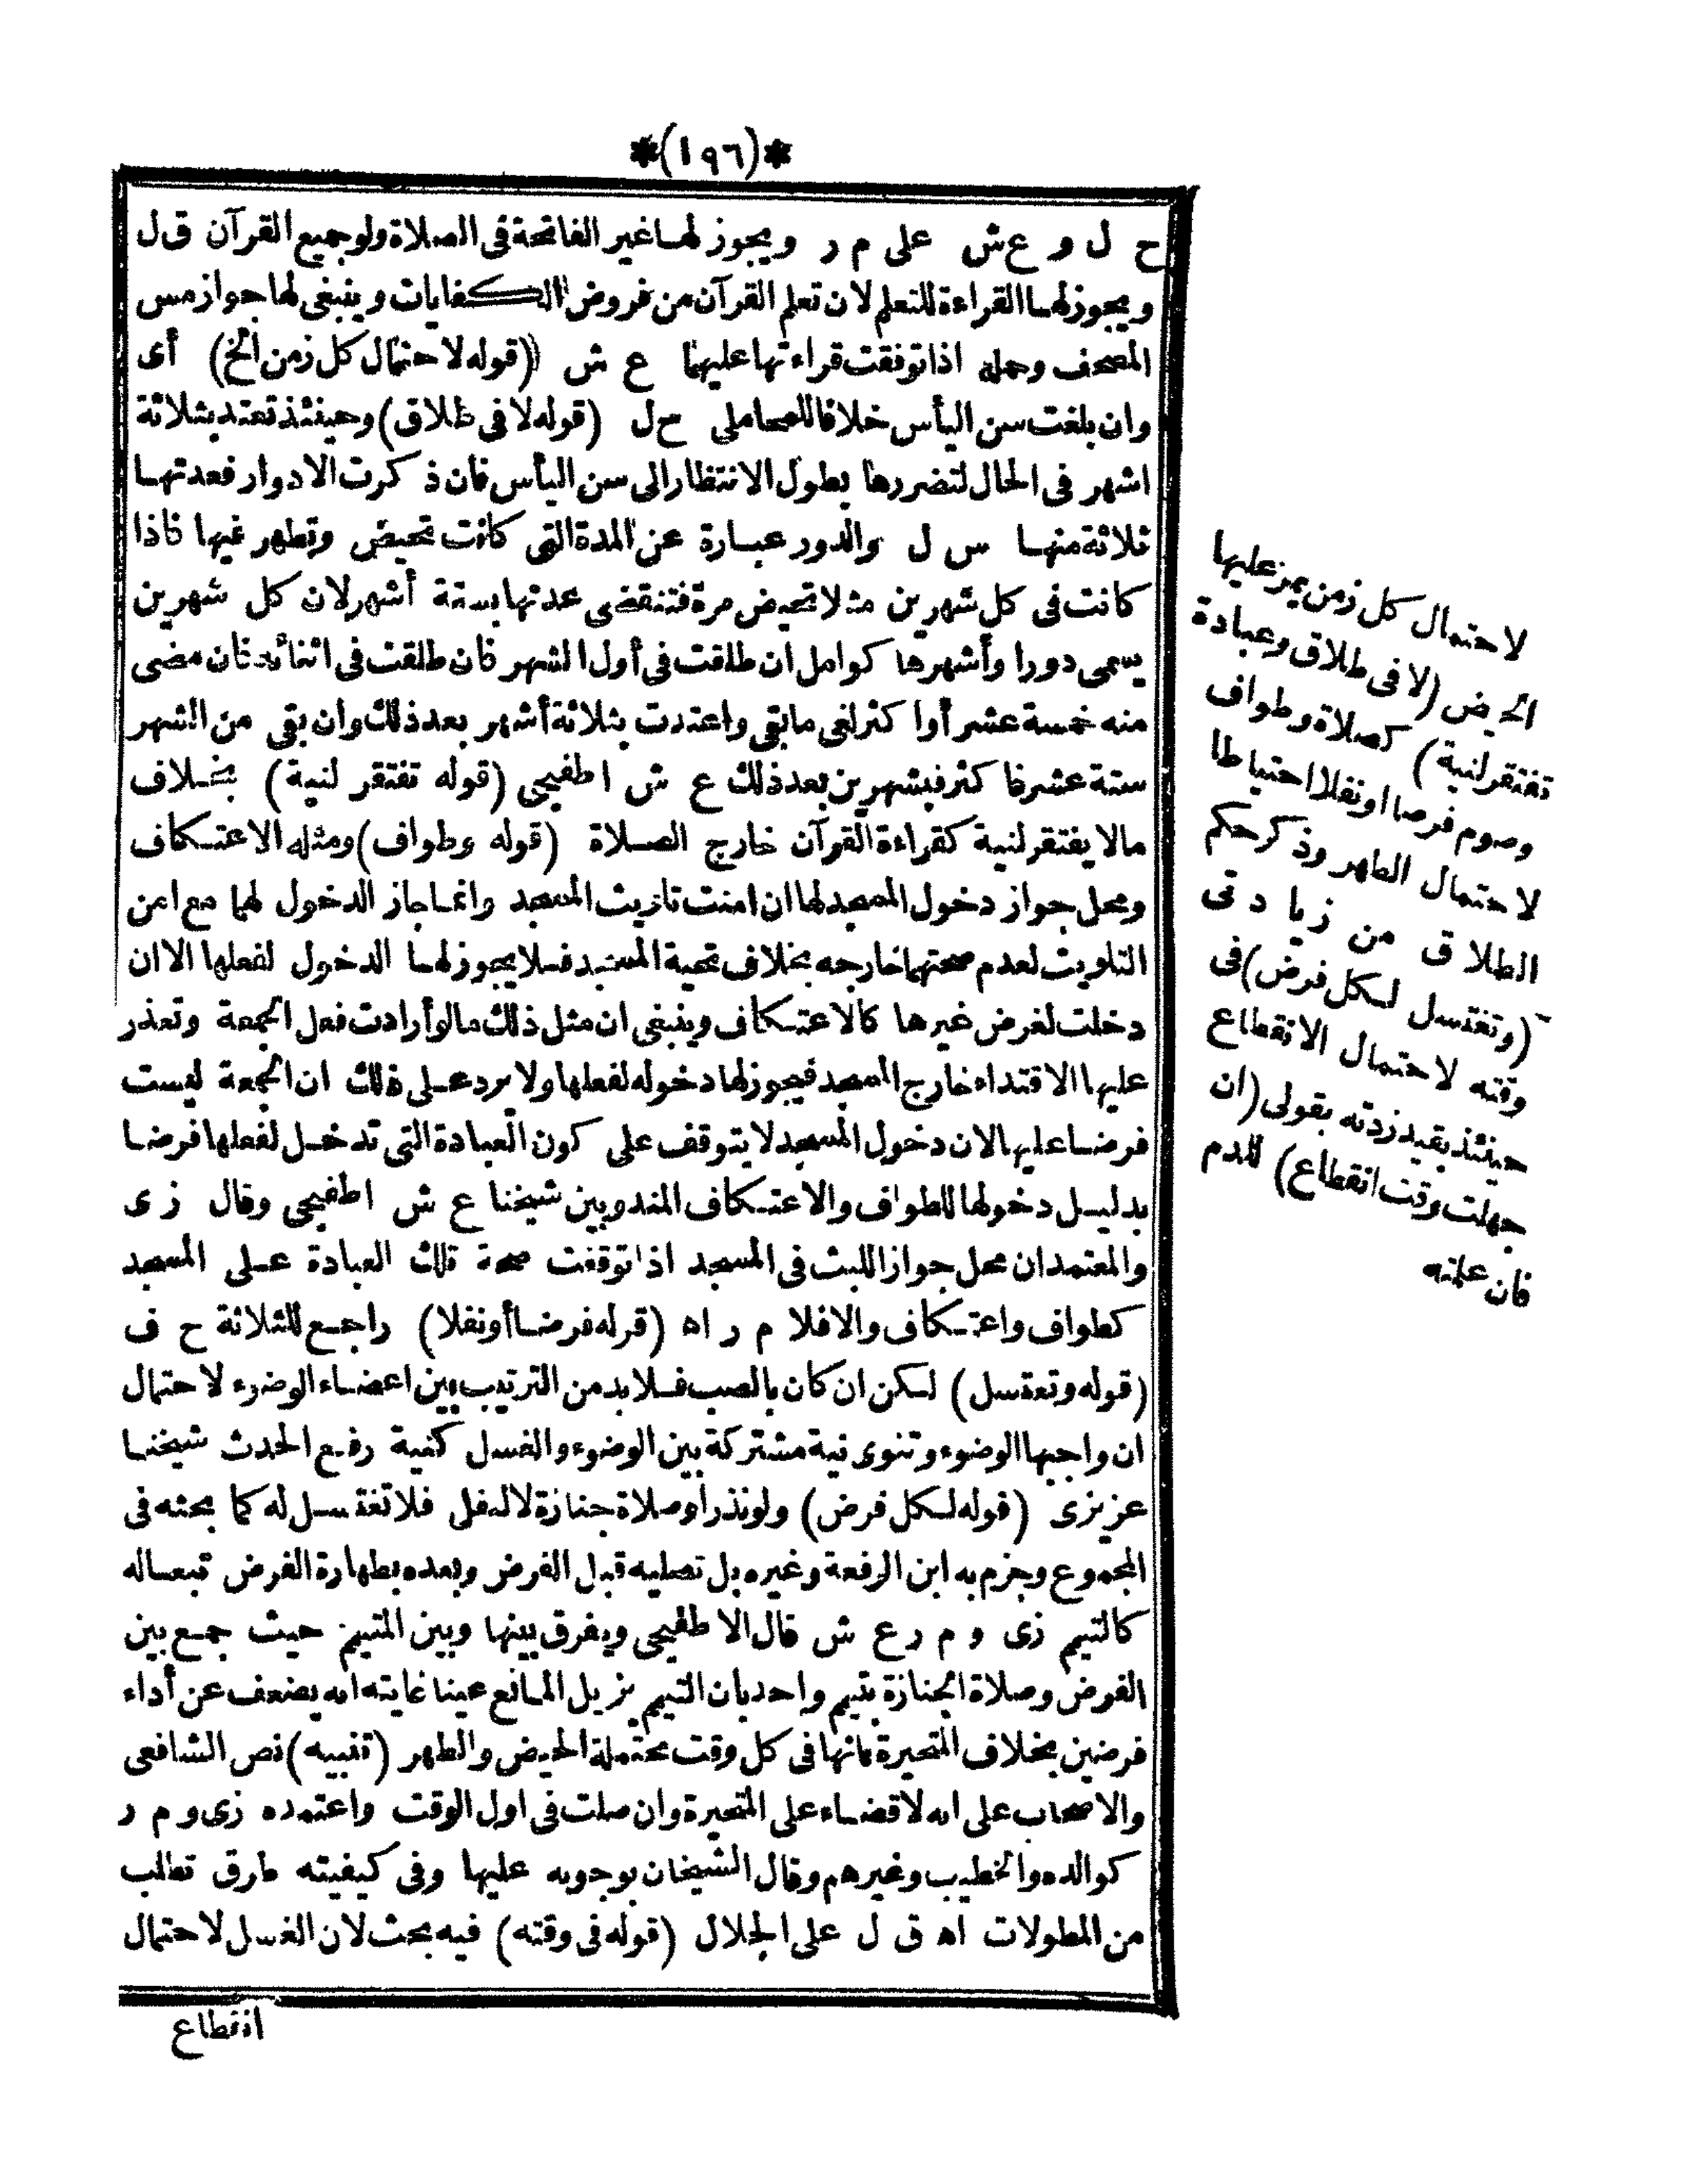 *(١٩٦)*
ح ل و ع ش على م ر ويجوز لها غير الفاتحة فى الصلاة ولو جميع القرآن ق ل
ويجوز لها القراءة للتعلم لان تعلم القرآن من فروض الكفايات وينبغى لها جواز مس
المصحف وحمله اذا توقفت قراءتها عليهما ع ش (قوله لاحتمال كل زمن الخ) أى
وان بلغت سن اليأس خلافا للمحاملى ح ل (قوله لا فى طلاق) وحينئذ تعتد بثلاثة
اشهر فى الحال لتضررها بطول الانتظار الى سن اليأس فان ذكرت الادوار فعدتها
ثلاثة منها س ل والدور عبارة عن المدة التى كانت تحيض وتطهر فيها فاذا
كانت فى كل شهرين مثلا تحيض مرة فتنقضى عدتها بستة أشهر لان كل شهرين
يسمى دورا وأشهرها كوامل ان طلقت فى أول الشهر فان طلقت فى اثنائه فان مضى
منه خمسة عشر أو اكثر لغى ما بقى واعتدت بثلاثة أشهر بعد ذلك وان بقى من الشهر
ستة عشر فاكثر فبشهرين بعد ذلك ع ش اطفيحى (قوله تفتقر لنية) بخلاف
مالا يفتقر لنية كقراءة القرآن خارج الصلاة (قوله وطواف) ومثله الاعتكاف
ومحل جواز دخول المسجد لها ان امنت تلويث المسجد وانما جاز الدخول لهما مع امن
التلويث لعدم صحتهما خارجه بخلاف تحية المسجد فلا يجوز لها الدخول لفعلها الا ان
دخلت لغرض غيرها كالاعتكاف وينبغى ان مثل ذلك ما لو أرادت فعل الجمعة وتعذر
عليها الاقتداء خارج المسجد فيجوز لها دخوله لفعلها ولا يرد على ذلك ان الجمعة ليست
فرضا عليها لان دخول المسجد لا يتوقف على كون العبادة التى تدخل لفعلها فرضا
بدليل دخولها للطواف والاعتكاف المندوبين شيخنا ع ش اطفيحى وقال ز ى
والمعتمد ان محل جواز اللبث فى المسجد اذا توقفت صحة تلك العبادة على المسجد
كطواف واعتكاف والا فلا م ر اه (قوله فرضا أو نفلا) راجع للثلاثة ح ف
(قوله وتغتسل) لكن ان كان بالصب فلا بد من الترتيب بين اعضاء الوضوء لاحتمال
ان واجبها الوضوء وتنوى نية مشتركة بين الوضوء والغسل كنية رفع الحدث شيخنا
عزيزى (قوله لكل فرض) ولو نذرا وصلاة جنازة لا لنفل فلا تغتسل له كما بحثه فى
المجموع وجزم به ابن الرفعة وغيره بل تصليه قبل الفرض وبعده بطهارة الفرض تبعا له
كالتيمم زى و م ر ع ش قال الاطفيحى ويفرق بينها وبين المتيمم حيث جمع بين
الفرض وصلاة الجنازة بتيمم واحد بان التيمم يزيل المانع عينا غايته انه يضعف عن أداء
فرضين بخلاف المتحيرة فانها فى كل وقت محتملة الحيض والطهر (تنبيه) نص الشافعى
والاصحاب على انه لا قضاء على المتحيرة وان صلت فى اول الوقت واعتمده زى و م ر
كوالده والخطيب وغيرهم وقال الشيخان بوجوبه عليها وفى كيفيته طرق تطلب
من المطولات اه ق ل على الجلال (قوله فى وقته) فيه بحث لان الغسل لاحتمال
انقطاع
لاحتمال كل زمن يمر عليها
الحيض (لا فى طلاق وعبادة
تفتقر لنية) كصلاة وطواف
وصوم فرضا او نفلا احتياطا
لاحتمال الطهر وذكر حكم
الطلاق من زيادتى
(وتغتسل لكل فرض) فى
وقته لاحتمال الانقطاع
حينئذ بقيد زدته بقولى (ان
جهلت وقت انقطاع) للدم
فان علمته